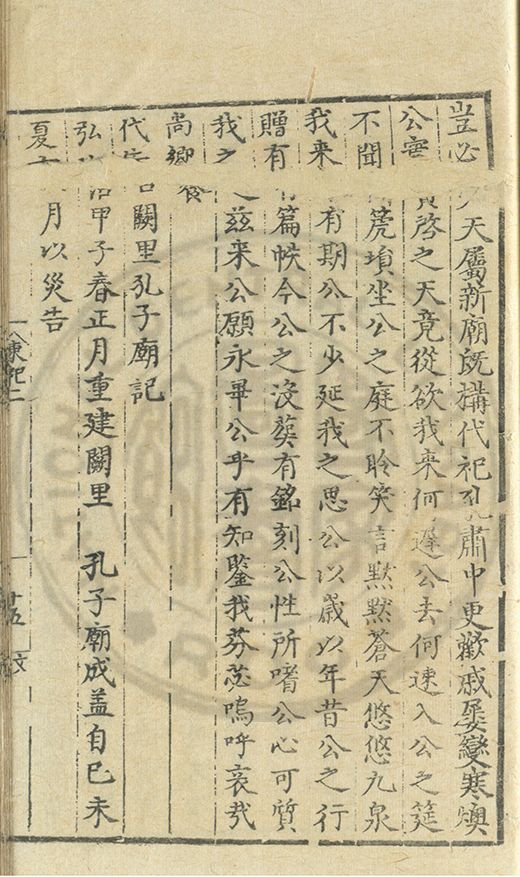 豈必天屬新廟旣搆代祀孔肅中更歡戚屢變寒燠
公寔啓之天竟從欲我来何遲公去何速入公之筵
不聞箎塤坐公之庭不聆笑言默默蒼天悠悠九泉
我来有期公不少延我之思公以歲以年昔公之行
贈有篇帙今公之沒葬有銘刻公性所嗜公心可質
我之茲来公願永畢公乎有知鑒我芬苾嗚呼哀哉
尚饗
代告闕里孔子廟記
弘治甲子春正月重建闕里 孔子廟成盖自己未
夏六月以災告
東祀二 十五 文